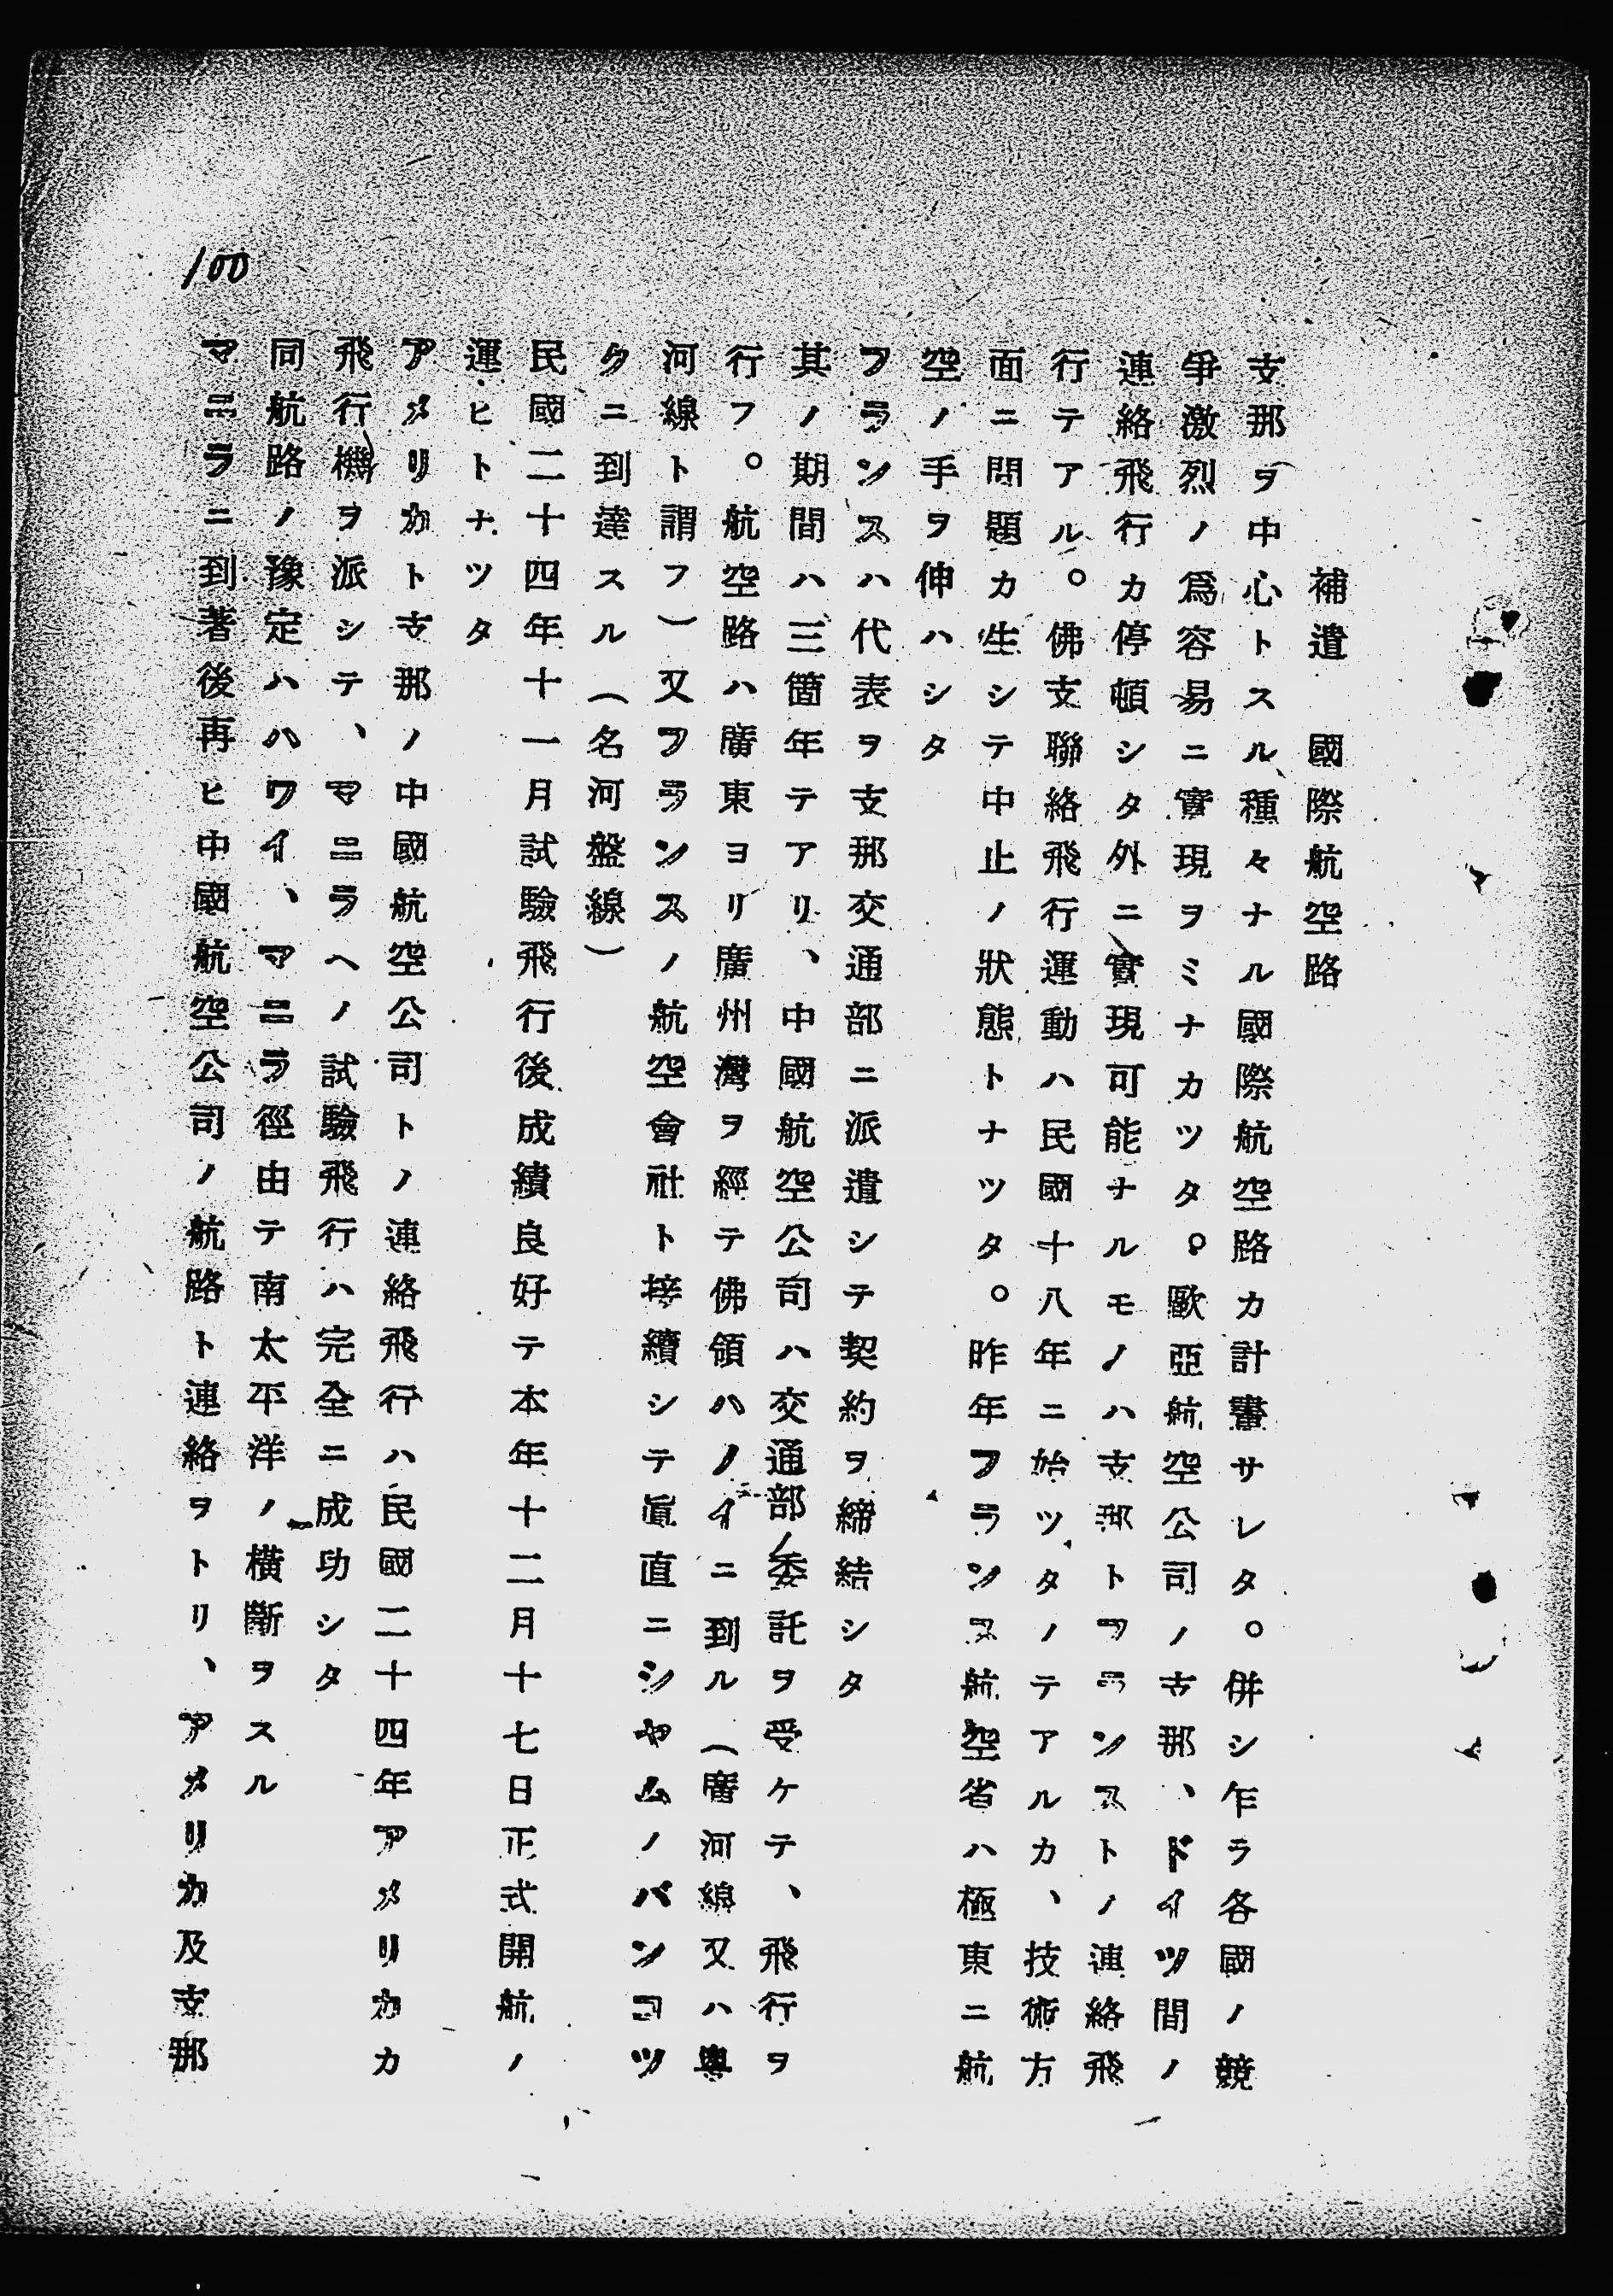 100
補遺　國際航空路
支那ヲ中心トスル種々ナル國際航空路カ計畫サレタ。併シ乍ラ各國ノ競
爭激烈ノ爲容易ニ實現ヲミナカツタ。歐亞航空公司ノ支那、ドイツ間ノ
連絡飛行カ停頓シタ外ニ實現可能ナルモノハ支那トフランストノ連絡飛
行テアル。佛支聯絡飛行運動ハ民國十八年ニ始ツタノテアルカ、技術方
面ニ問題カ生シテ中止ノ狀態トナツタ。昨年フランス航空省ハ極東ニ航
空ノ手ヲ伸ハシタ
フランスハ代表ヲ支那交通部ニ派遣シテ契約ヲ締結シタ
其ノ期間ハ三箇年テアリ、中國航空公司ハ交通部ノ委託ヲ受ケテ、飛行ヲ
行フ。航空路ハ廣東ヨリ廣州灣ヲ經テ佛領ハノイニ到ル（廣河線又ハ粤
河線ト謂フ）又フランスノ航空會社ト接續シテ眞直ニシヤムノバンコツ
クニ到達スル（名河盤線）
民國二十四年十一月試驗飛行後成績良好テ本年十二月十七日正式開航ノ
運ヒトナツタ
アメリカト支那ノ中國航空公司トノ連絡飛行ハ民國二十四年アメリカカ
飛行機ヲ派シテ、マニラヘノ試驗飛行ハ完全ニ成功シタ
同航路ノ豫定ハハワイ、マニラ徑由テ南太平洋ノ橫斷ヲスル
マニラニ到著後再ヒ中國航空公司ノ航路ト連絡ヲトリ、アメリカ及支那